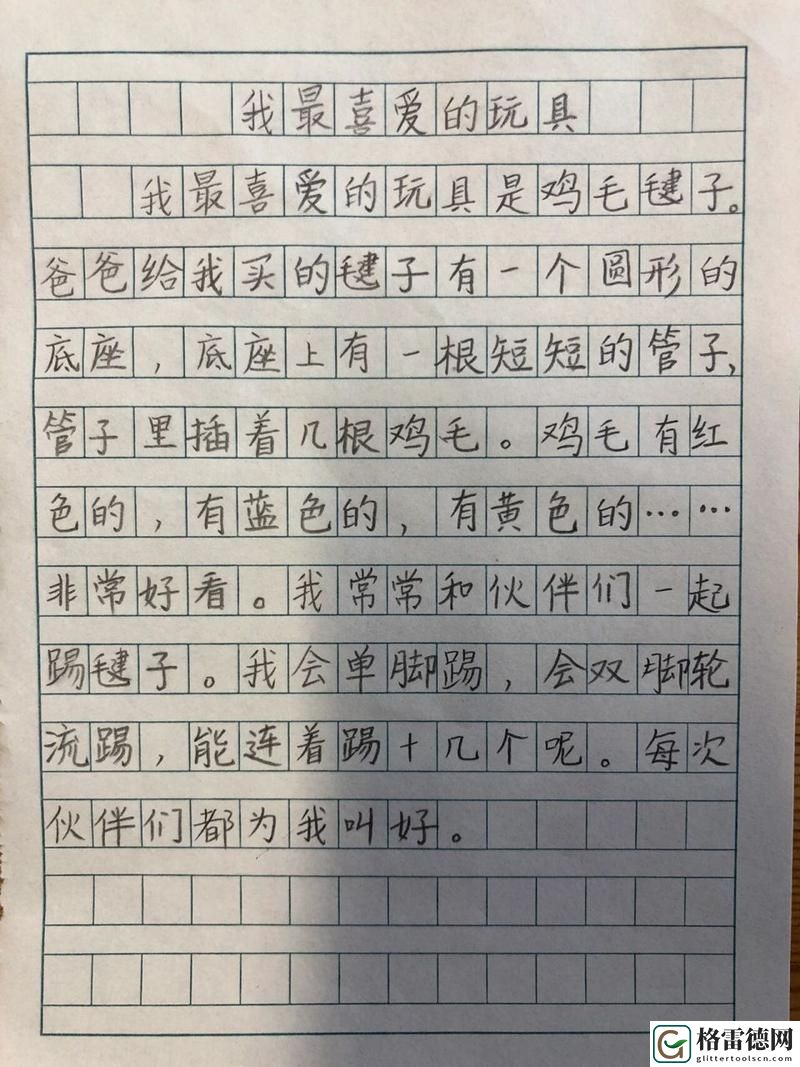 我最喜爱的玩具
我最喜爱的玩具是鸡毛毽子。
爸爸给我买的毽子有一个圆形的
底座，底座上有一根短短的管子，
管子里插着几根鸡毛。鸡毛有红
色的，有蓝色的，有黄色的……
非常好看。我常常和伙伴们一起
踢毽子。我会单脚踢，会双脚轮
流踢，能连着踢十几个呢。每次
伙伴们都为我叫好。
格雷德网
glittertoolscn.com